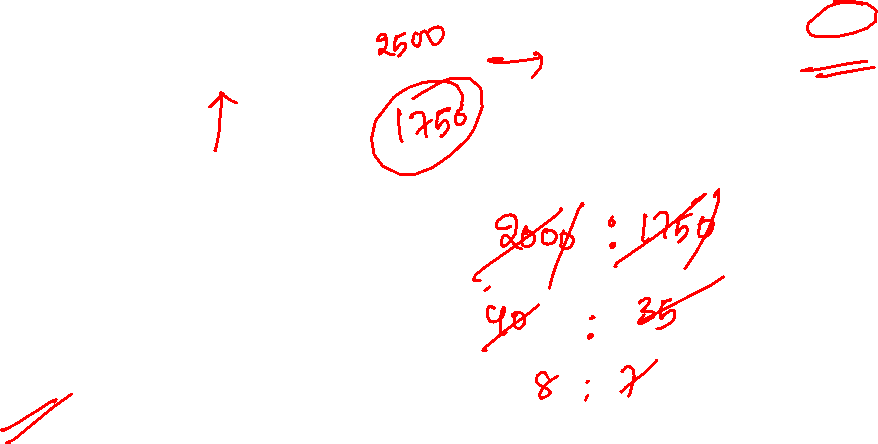 2500
1750
2000 : 1750
40 : 35
8 : 7